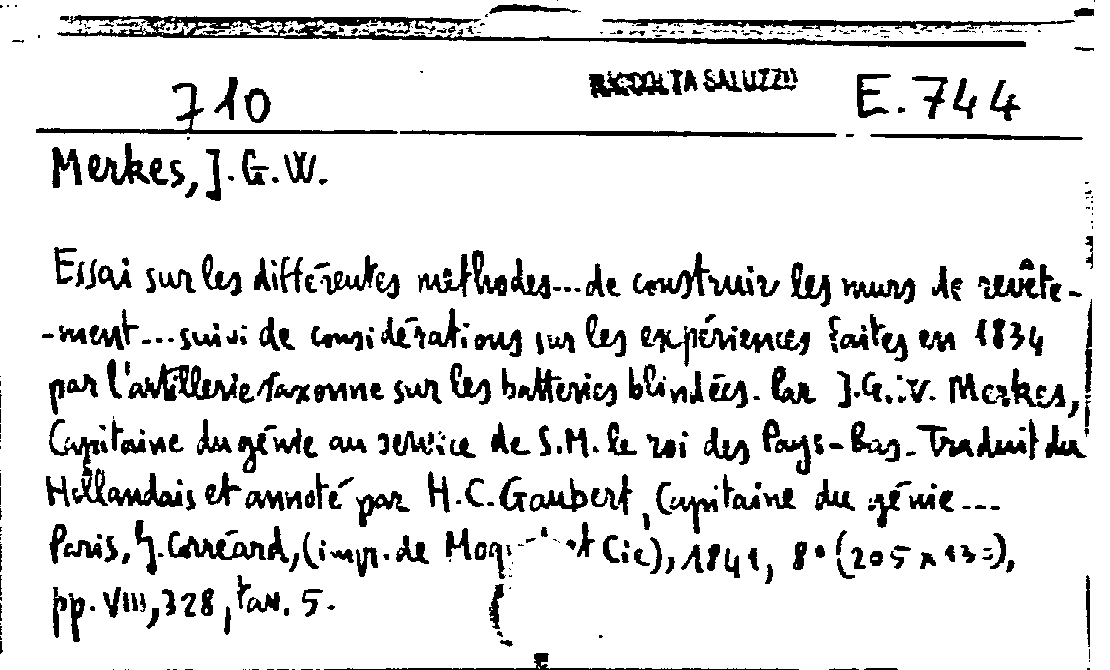 710 RACCOLTA SALUZZO E.744
Merkes, J.G.W.
Essai sur les différentes méthodes...de construir les murs de revête-
-ment...suivi de considérations sur les expériences faites en 1834
par l'artillerie saxonne sur les batteries blindées. Par J.G.W. Merkes,
Capitaine du génie au service de S.M. le roi des Pays-Bas. Traduit du
Hollandais et annoté par H.C. Gaubert, Capitaine du génie...
Paris, J. Corréard, (impr. de et Cie), 1841, 8° (205 x
pp. VIII, 328, tav. 5.